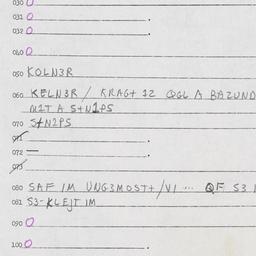 030 O
031 O .
032 O .
040 O
050 KOLN3R
060 KELN3R / KRAG+ 12 QGL A BAZUND
M2T A S+N1PS
070 S+N2PS
071
072 — .
073
080 SAF IM UNG3MOST+/VI ... QF S3
081 S3-KLEJT IM
090 O
100 O .